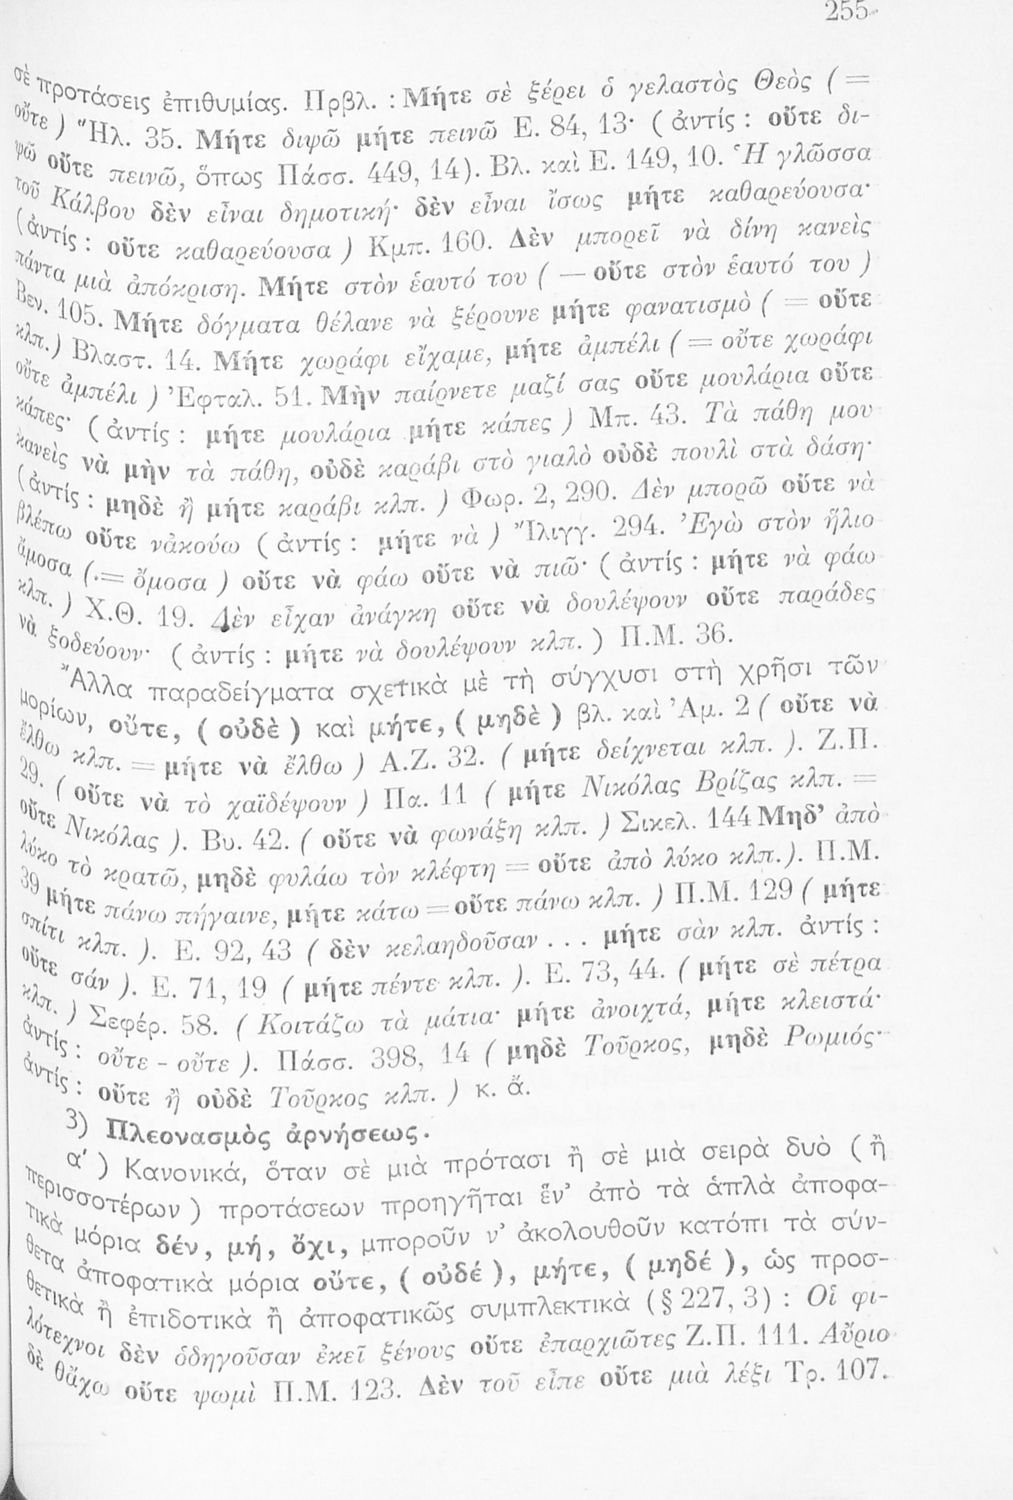 255
σὲ προτάσεις ἐπιθυμίας. Πρβλ. : Μήτε σὲ ξέρει ὁ γελαστὸς Θεὸς ( =
οὔτε ) Ἠλ. 35. Μήτε διψῶ μήτε πεινῶ Ε. 84, 13· ( ἀντίς : οὔτε δι-
ψῶ οὔτε πεινῶ, ὅπως Πάσσ. 449, 14). Βλ. καὶ Ε. 149, 10. Ἡ γλῶσσα
τοῦ Κάλβου δὲν εἶναι δημοτική· δὲν εἶναι ἴσως μήτε καθαρεύουσα·
(ἀντίς : οὔτε καθαρεύουσα ) Κμπ. 160. Δὲν μπορεῖ νὰ δίνη κανεὶς
πάντα μιὰ ἀπόκριση. Μήτε στὸν ἑαυτό του ( = οὔτε στὸν ἑαυτό του )
Βεν. 105. Μήτε δόγματα θέλανε νὰ ξέρουνε μήτε φανατισμὸ ( = οὔτε
κλπ.) Βλαστ. 14. Μήτε χωράφι εἴχαμε, μήτε ἀμπέλι ( = οὔτε χωράφι
οὔτε ἀμπέλι ) Ἐφταλ. 51. Μὴν παίρνετε μαζί σας οὔτε μουλάρια οὔτε
κάπες· ( ἀντίς : μήτε μουλάρια μήτε κάπες ) Μπ. 43. Τὰ πάθη μου
κανεὶς νὰ μὴν τὰ πάθη, οὐδὲ καράβι στὸ γιαλὸ οὐδὲ πουλὶ στὰ δάση·
(ἀντίς : μηδὲ ἢ μήτε καράβι κλπ. ) Φωρ. 2, 290. Δὲν μπορῶ οὔτε νὰ
βλέπω οὔτε νἀκούω ( ἀντίς : μήτε νὰ ) Ἴλιγγ. 294. Ἐγὼ στὸν ἥλιο
ἄμοσα (·= ὄμοσα ) οὔτε νὰ φάω οὔτε νὰ πιῶ· ( ἀντίς : μήτε νὰ φάω
κλπ. ) Χ.Θ. 19. Δὲν εἶχαν ἀνάγκη οὔτε νὰ δουλέψουν οὔτε παράδες
νὰ ξοδεύουν· ( ἀντίς : μήτε νὰ δουλέψουν κλπ. ) Π.Μ. 36.
Ἄλλα παραδείγματα σχετικὰ μὲ τὴ σύγχυσι στὴ χρῆσι τῶν
μορίων, οὔτε, ( οὐδὲ ) καὶ μήτε, ( μηδὲ ) βλ. καὶ Ἀμ. 2 ( οὔτε νὰ
ἔλθω κλπ. = μήτε νὰ ἔλθω ) Α.Ζ. 32. ( μήτε δείχνεται κλπ. ). Ζ.Π.
29. ( οὔτε νὰ τὸ χαϊδέψουν ) Πα. 11 ( μήτε Νικόλας Βρίζας κλπ. =
οὔτε Νικόλας ). Βυ. 42. ( οὔτε νὰ φωνάξη κλπ. ) Σικελ. 144 Μηδ’ ἀπὸ
λύκο τὸ κρατῶ, μηδὲ φυλάω τὸν κλέφτη = οὔτε ἀπὸ λύκο κλπ.). Π.Μ.
39 μήτε πάνω πήγαινε, μήτε κάτω = οὔτε πάνω κλπ. ) Π.Μ. 129 ( μήτε
σπίτι κλπ. ). Ε. 92, 43 ( δὲν κελαηδοῦσαν . . . μήτε σὰν κλπ. ἀντίς :
οὔτε σάν ). Ε. 71, 19 ( μήτε πέντε κλπ. ). Ε. 73, 44. ( μήτε σὲ πέτρα
κλπ. ) Σεφέρ. 58. ( Κοιτάζω τὰ μάτια· μήτε ἀνοιχτά, μήτε κλειστά·
ἀντίς : οὔτε - οὔτε ). Πάσσ. 398, 14 ( μηδὲ Τοῦρκος, μηδὲ Ρωμιός·
ἀντίς : οὔτε ἢ οὐδὲ Τοῦρκος κλπ. ) κ. ἄ.
3) Πλεονασμὸς ἀρνήσεως.
α΄ ) Κανονικά, ὅταν σὲ μιὰ πρότασι ἢ σὲ μιὰ σειρὰ δυὸ ( ἢ
περισσοτέρων ) προτάσεων προηγῆται ἕν’ ἀπὸ τὰ ἁπλὰ ἀποφα-
τικὰ μόρια δέν, μή, ὄχι, μποροῦν ν’ ἀκολουθοῦν κατόπι τὰ σύν-
θετα ἀποφατικὰ μόρια οὔτε, ( οὐδέ ), μήτε, ( μηδέ ), ὡς προσ-
θετικὰ ἢ ἐπιδοτικὰ ἢ ἀποφατικῶς συμπλεκτικὰ (§ 227, 3) : Οἱ φι-
λότεχνοι δὲν ὁδηγοῦσαν ἐκεῖ ξένους οὔτε ἐπαρχιῶτες Ζ.Π. 111. Αὔριο
δὲ θἄχω οὔτε ψωμὶ Π.Μ. 123. Δὲν τοῦ εἶπε οὔτε μιὰ λέξι Τρ. 107.